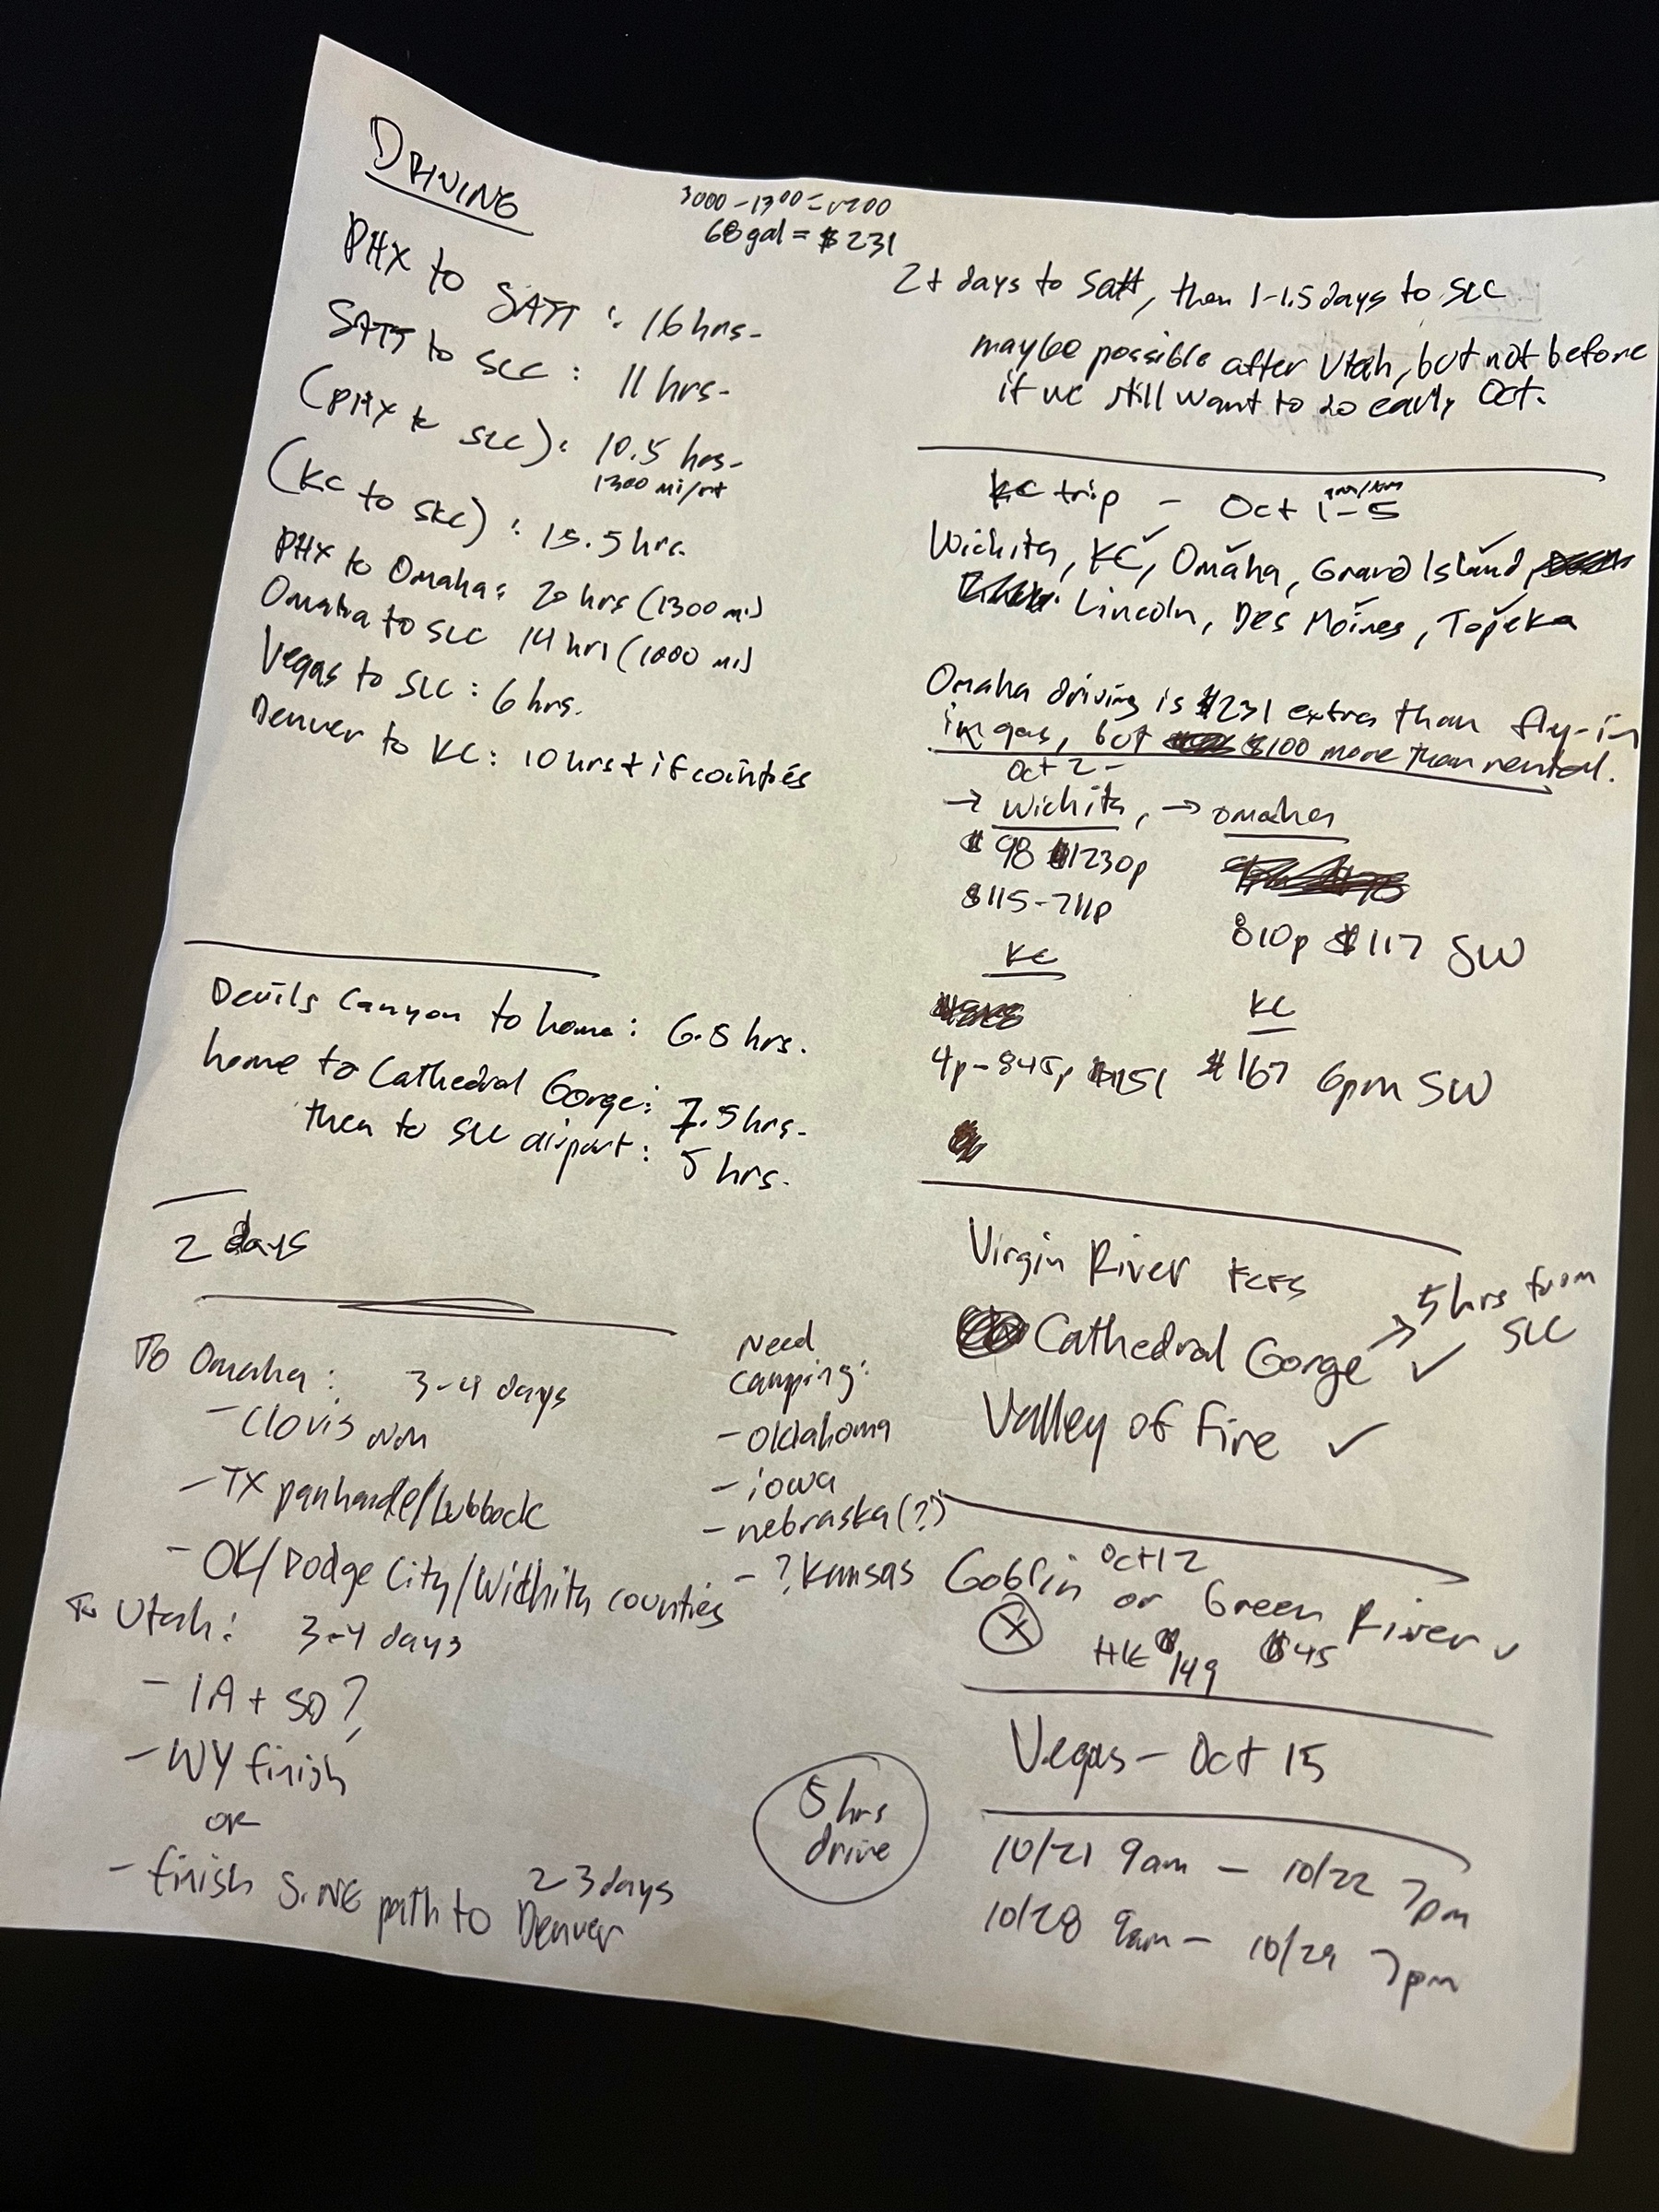 DRIVING
3000 - 1300 = 1700
68 gal = $231
PHX to SATT : 16 hrs.
SATT to SLC : 11 hrs.
(PHX to SLC): 10.5 hrs.
1300 mi/rt
(KC to SLC) : 15.5 hrs.
PHX to Omaha: 20 hrs (1300 mi)
Omaha to SLC 14 hrs (1000 mi)
Vegas to SLC : 6 hrs.
Denver to KC: 10 hrs + if counties
Devils Canyon to home: 6.5 hrs.
home to Cathedral Gorge: 7.5 hrs.
then to SLC airport: 5 hrs.
2 days
To Omaha: 3-4 days
- Clovis NM
- TX panhandle/Lubbock
- OK/Dodge City/Wichita counties
To Utah: 3-4 days
- IA + SD?
- WY finish
or
- finish S. NE path to Denver
2-3 days
Need
camping:
- Oklahoma
- iowa
- nebraska(?)
- ? Kansas
5 hrs
drive
2+ days to Satt, then 1-1.5 days to SLC
maybe possible after Utah, but not before
if we still want to do early Oct.
KC trip - Oct 1-5
Wichita, KC, Omaha, Grand Island,
Lincoln, Des Moines, Topeka
Omaha driving is $231 extra than fly-in
in gas, but $100 more than rental.
Oct 2 -
→ Wichita, → Omaha
$98 1230p
$115-711p
810p $117 SW
KC
4p-845p $151
KC
$167 6pm SW
Virgin River FCFS
Cathedral Gorge ✓ → 5 hrs from
SLC
Valley of Fire ✓
Oct 12
Goblin or Green River ✓
X HK $149 $45
Vegas - Oct 15
10/21 9am - 10/22 7pm
10/28 9am - 10/29 7pm